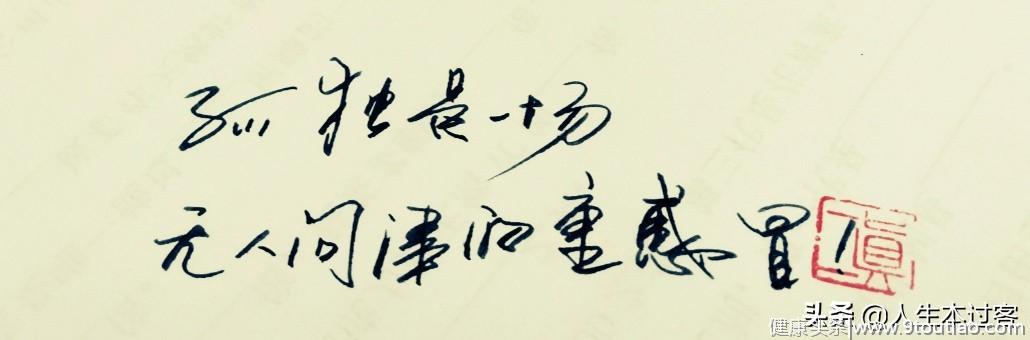 孤独是一场
无人问津的重感冒!
头条 @人生本过客
健康头条 www.9toutiao.com